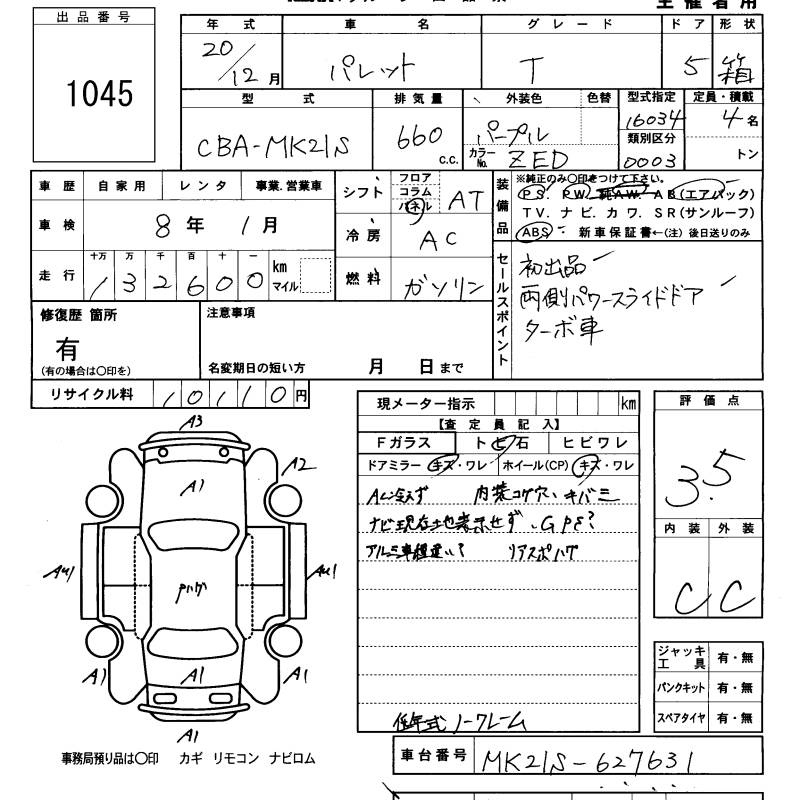 出品番号
1045
年式 車名 グレード ドア 形状
20/12月 パレット T 5 箱
型式 排気量 外装色 色替 型式指定 定員・積載
CBA-MK21S 660 c.c. パープル 16034 4名
カラーNo. ZED 類別区分 0003 トン
車歴 自家用 レンタ 事業.営業車
車検 8年 1月
走行 十万 万 千 百 十 一
132600 km マイル
シフト フロア コラム パネル AT
冷房 AC
燃料 ガソリン
装備品
※純正のみ〇印をつけて下さい。
PS. PW. 純AW. AB(エアバック)
TV. ナビ. カワ. SR(サンルーフ)
ABS 新車保証書←(注)後日送りのみ
セールスポイント
初出品
両側パワースライドドア
ターボ車
修復歴 箇所
有
(有の場合は〇印を)
注意事項
名変期日の短い方 月 日まで
リサイクル料 10110円
現メーター指示 km
【査定員記入】
Fガラス トビ石 ヒビワレ
ドアミラー キズ・ワレ ホイール(CP) キズ・ワレ
AC冷えず 内装コゲ穴、キバミ
ナビ現在地表示せず、GPS?
アルミ車種違い? リアスポハゲ
低年式ノークレーム
評価点
3.5
内装 外装
C C
ジャッキ工具 有・無
パンクキット 有・無
スペアタイヤ 有・無
A3
A2
A1
AU1
AU1
ハゲ
A1
A1
A1
A1
事務局預り品は〇印 カギ リモコン ナビロム
車台番号 MK21S-627631